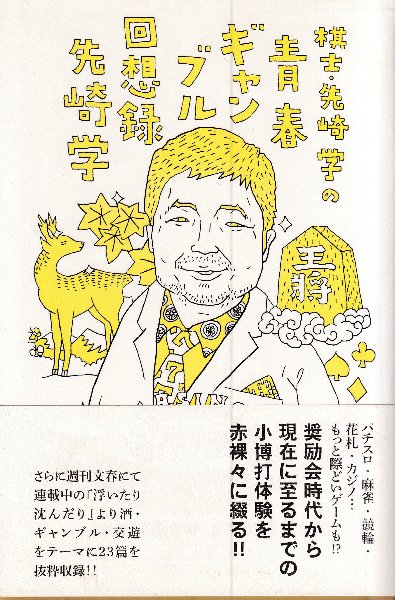 棋士・先崎学の
青春
ギャン
ブル
回想録
先崎学
王将
パチスロ・麻雀・競輪・
花札・カジノ…
もっと際どいゲームも!?
奨励会時代から
現在に至るまでの
小博打体験を
赤裸々に綴る!!
さらに週刊文春にて
連載中の「浮いたり
沈んだり」より酒・
ギャンブル・交遊
をテーマに23篇を
抜粋収録!!